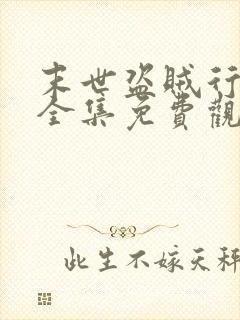 末世盗贼行
全集免費觀
此生不嫁天秤